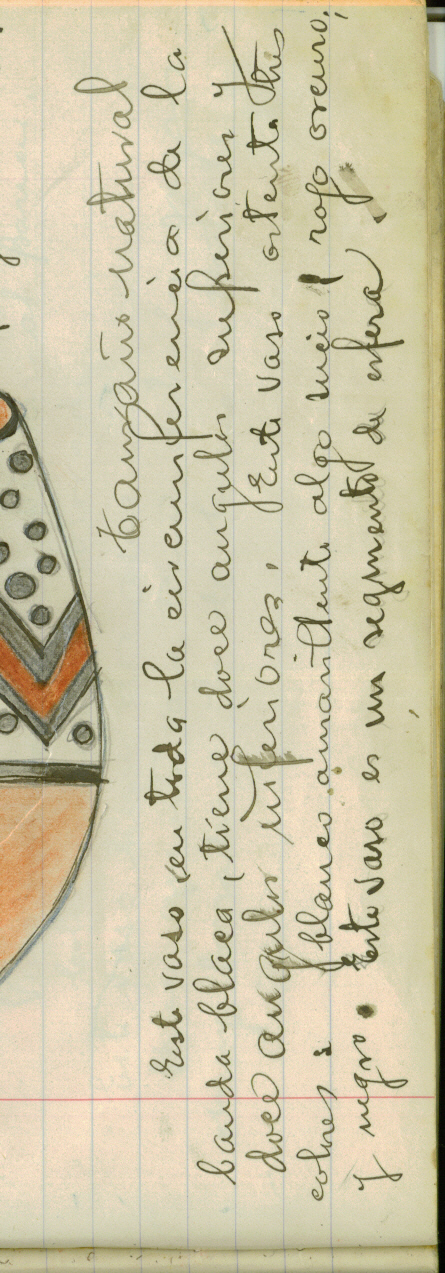 tamaño natural
Este vaso, en toda la circunferencia de la
banda blaca, tiene doce angulos superiores y
doce angulos inferiores. Este vaso ostenta tres
colores: blanco amarillento algo sucio, rojo oscuro,
y negro. Este vaso es un segmento de esfera.